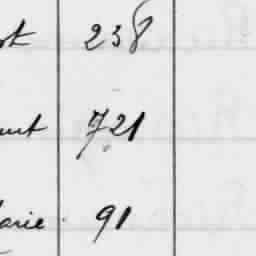 238
721
arie 91